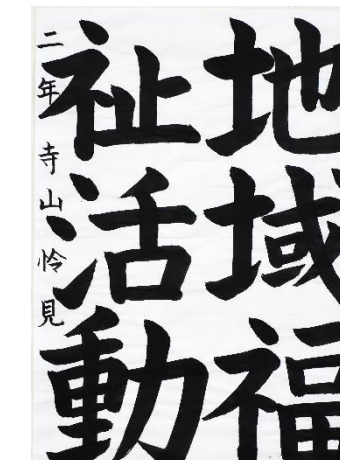 地域福
祉活動
二年 寺山怜見